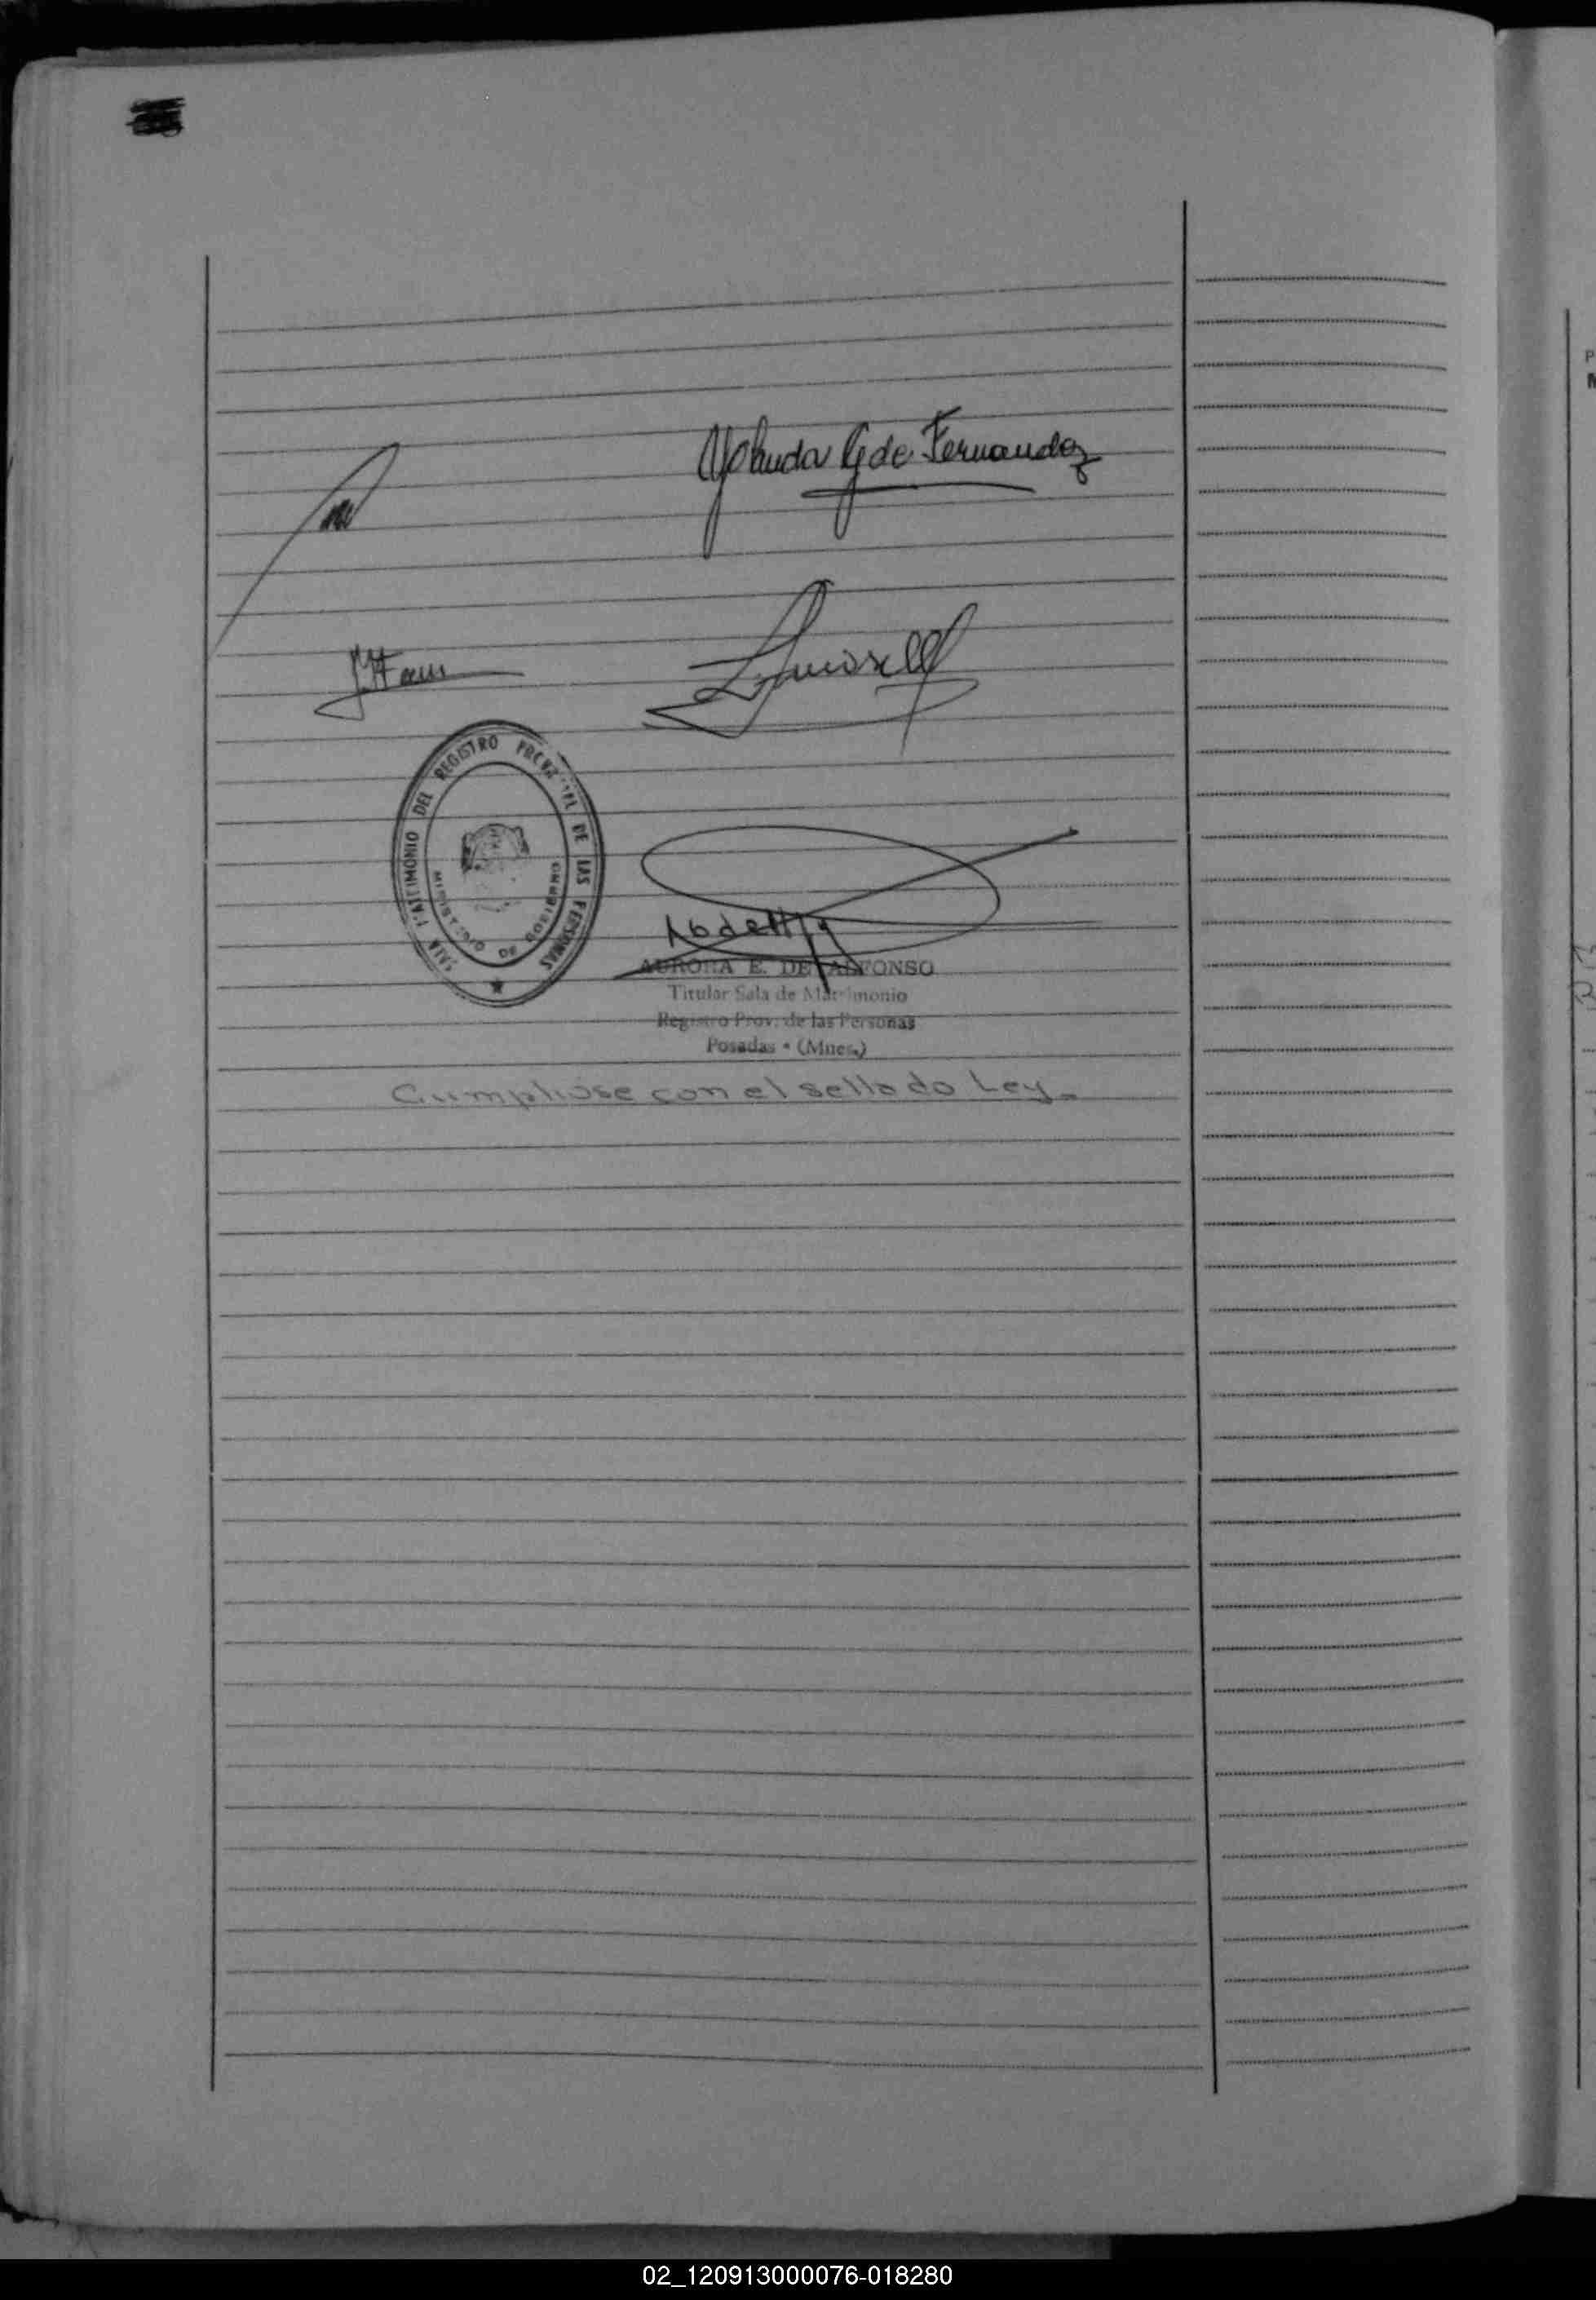 Yolanda G de Fernandez
SALA MATRIMONIO DEL REGISTRO PROVINCIAL DE LAS PERSONAS
MINISTERIO DE GOBIERNO
AURORA E. DE ALFONSO
Titular Sala de Matrimonio
Registro Prov. de las Personas
Posadas - (Mnes.)
Cumpliose con el sellado Ley.-
02_120913000076-018280